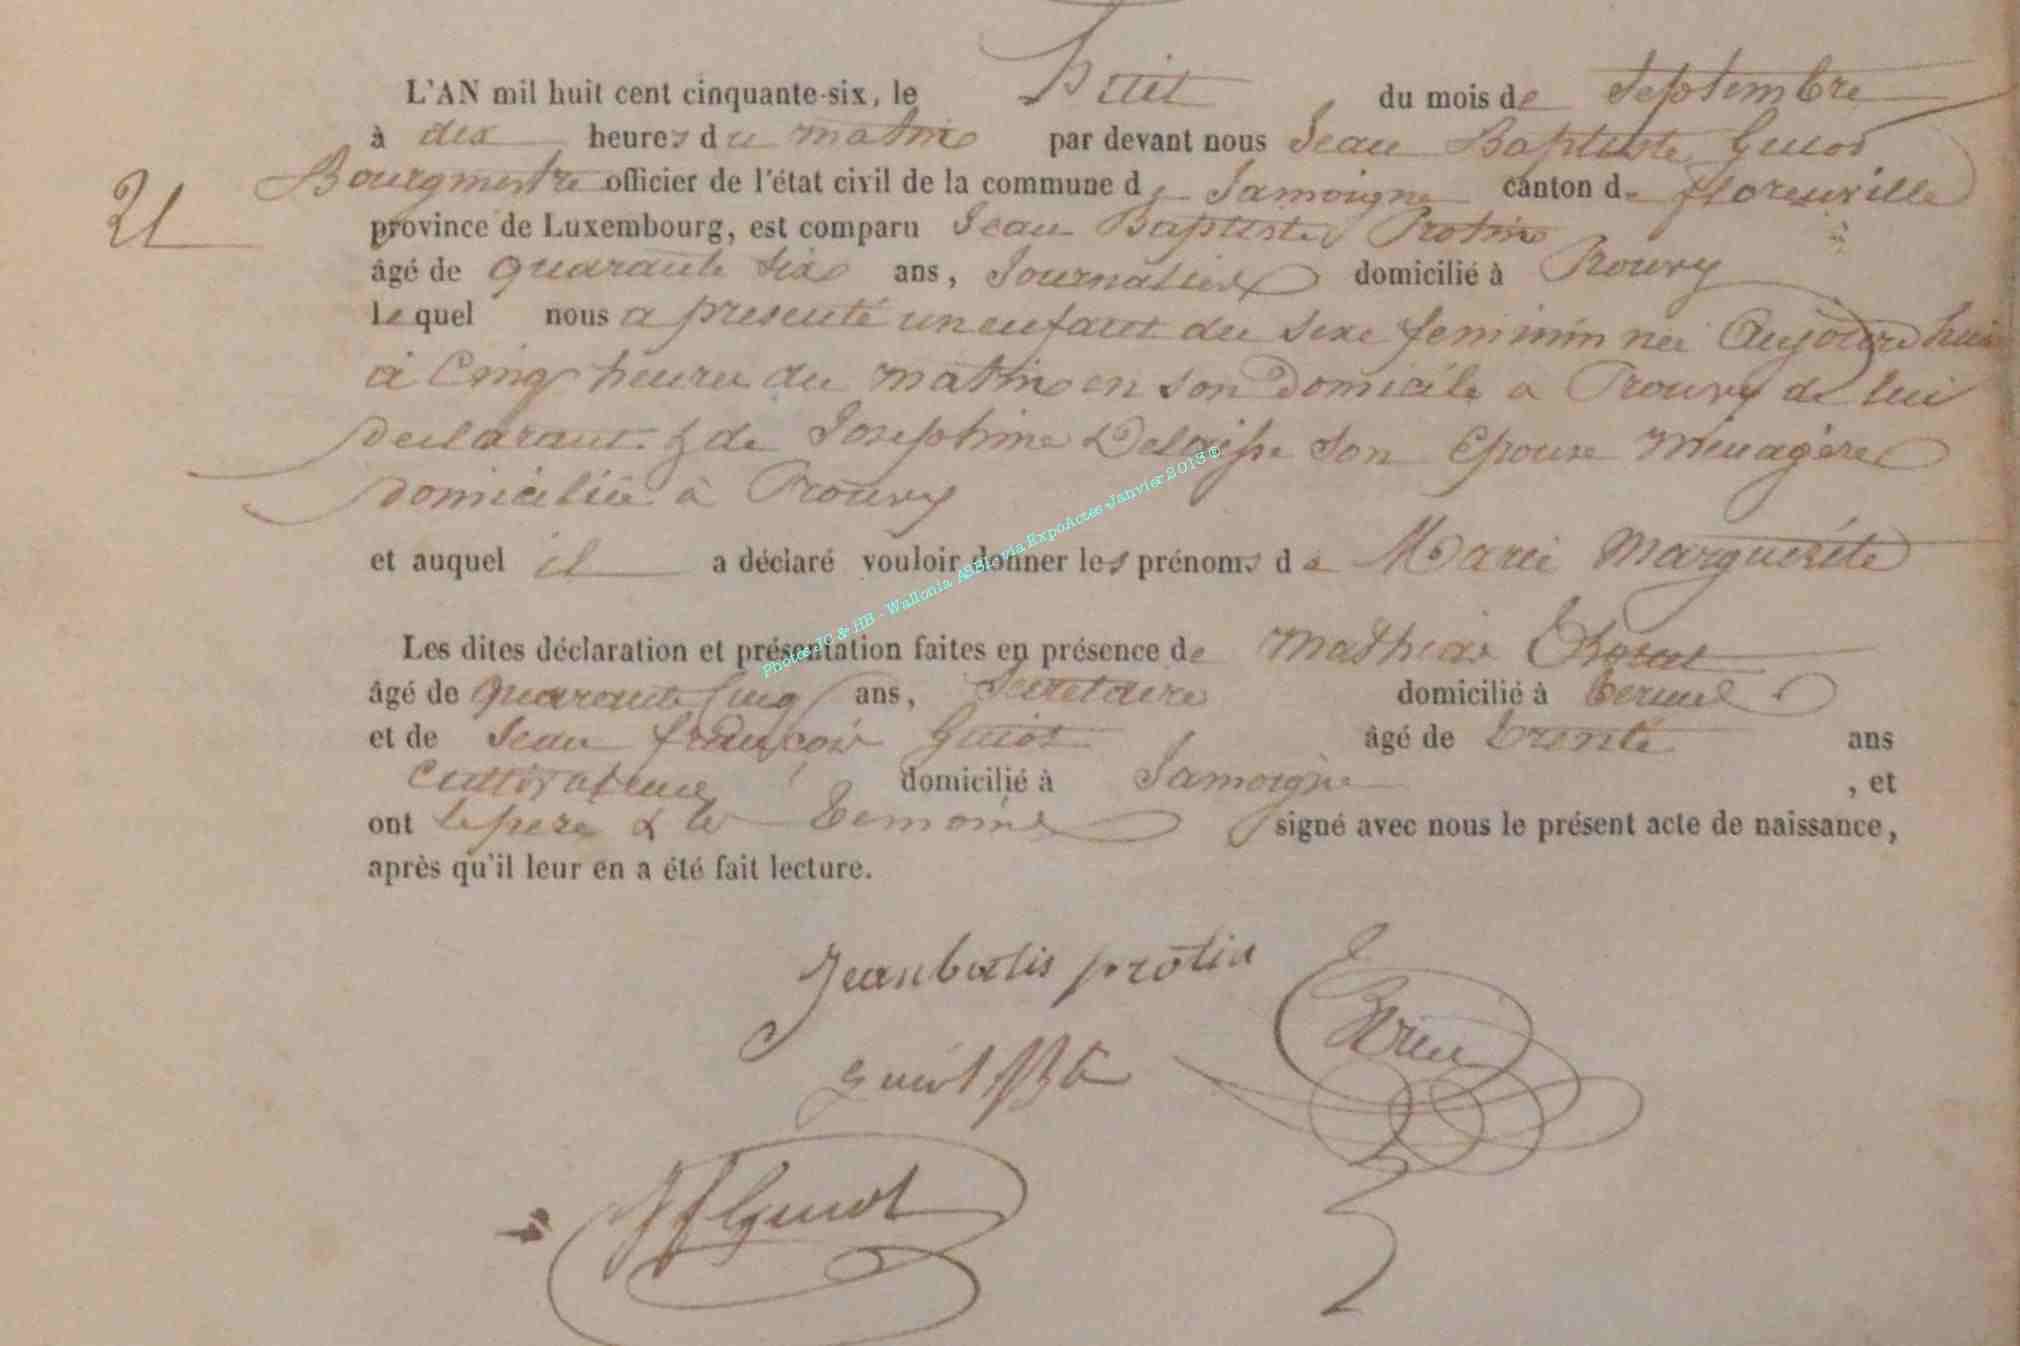 L'AN mil huit cent cinquante-six, le huit du mois de Septembre
à dix heures du matin par devant nous Jean Baptiste Guiot
Bourgmestre officier de l'état civil de la commune de Jamoigne canton de florenville
21
province de Luxembourg, est comparu Jean Baptiste Protin
âgé de quarante six ans, Journalier domicilié à Prouvy
lequel nous a presenté un enfant du sexe feminin née Aujourd hui
à Cinq heures du matin en son Domicile a Prouvy de lui
declarant & de Josephine son Epouse menagère
domiciliée à Prouvy
et auquel il a déclaré vouloir donner les prénoms de Marie Marguerite
Photos JC & HB - Wallonia ASBL via ExpoActes Janvier 2013 ©
Les dites déclaration et présentation faites en présence de Mathieu
âgé de quarante Cinq ans, Secretaire domicilié à
et de Jean françois Guiot âgé de trente ans
cultivateur domicilié à Jamoigne , et
ont le pere & les temoins signé avec nous le présent acte de naissance,
après qu'il leur en a été fait lecture.
Jean batis protin
guiot JBte
JfGuiot